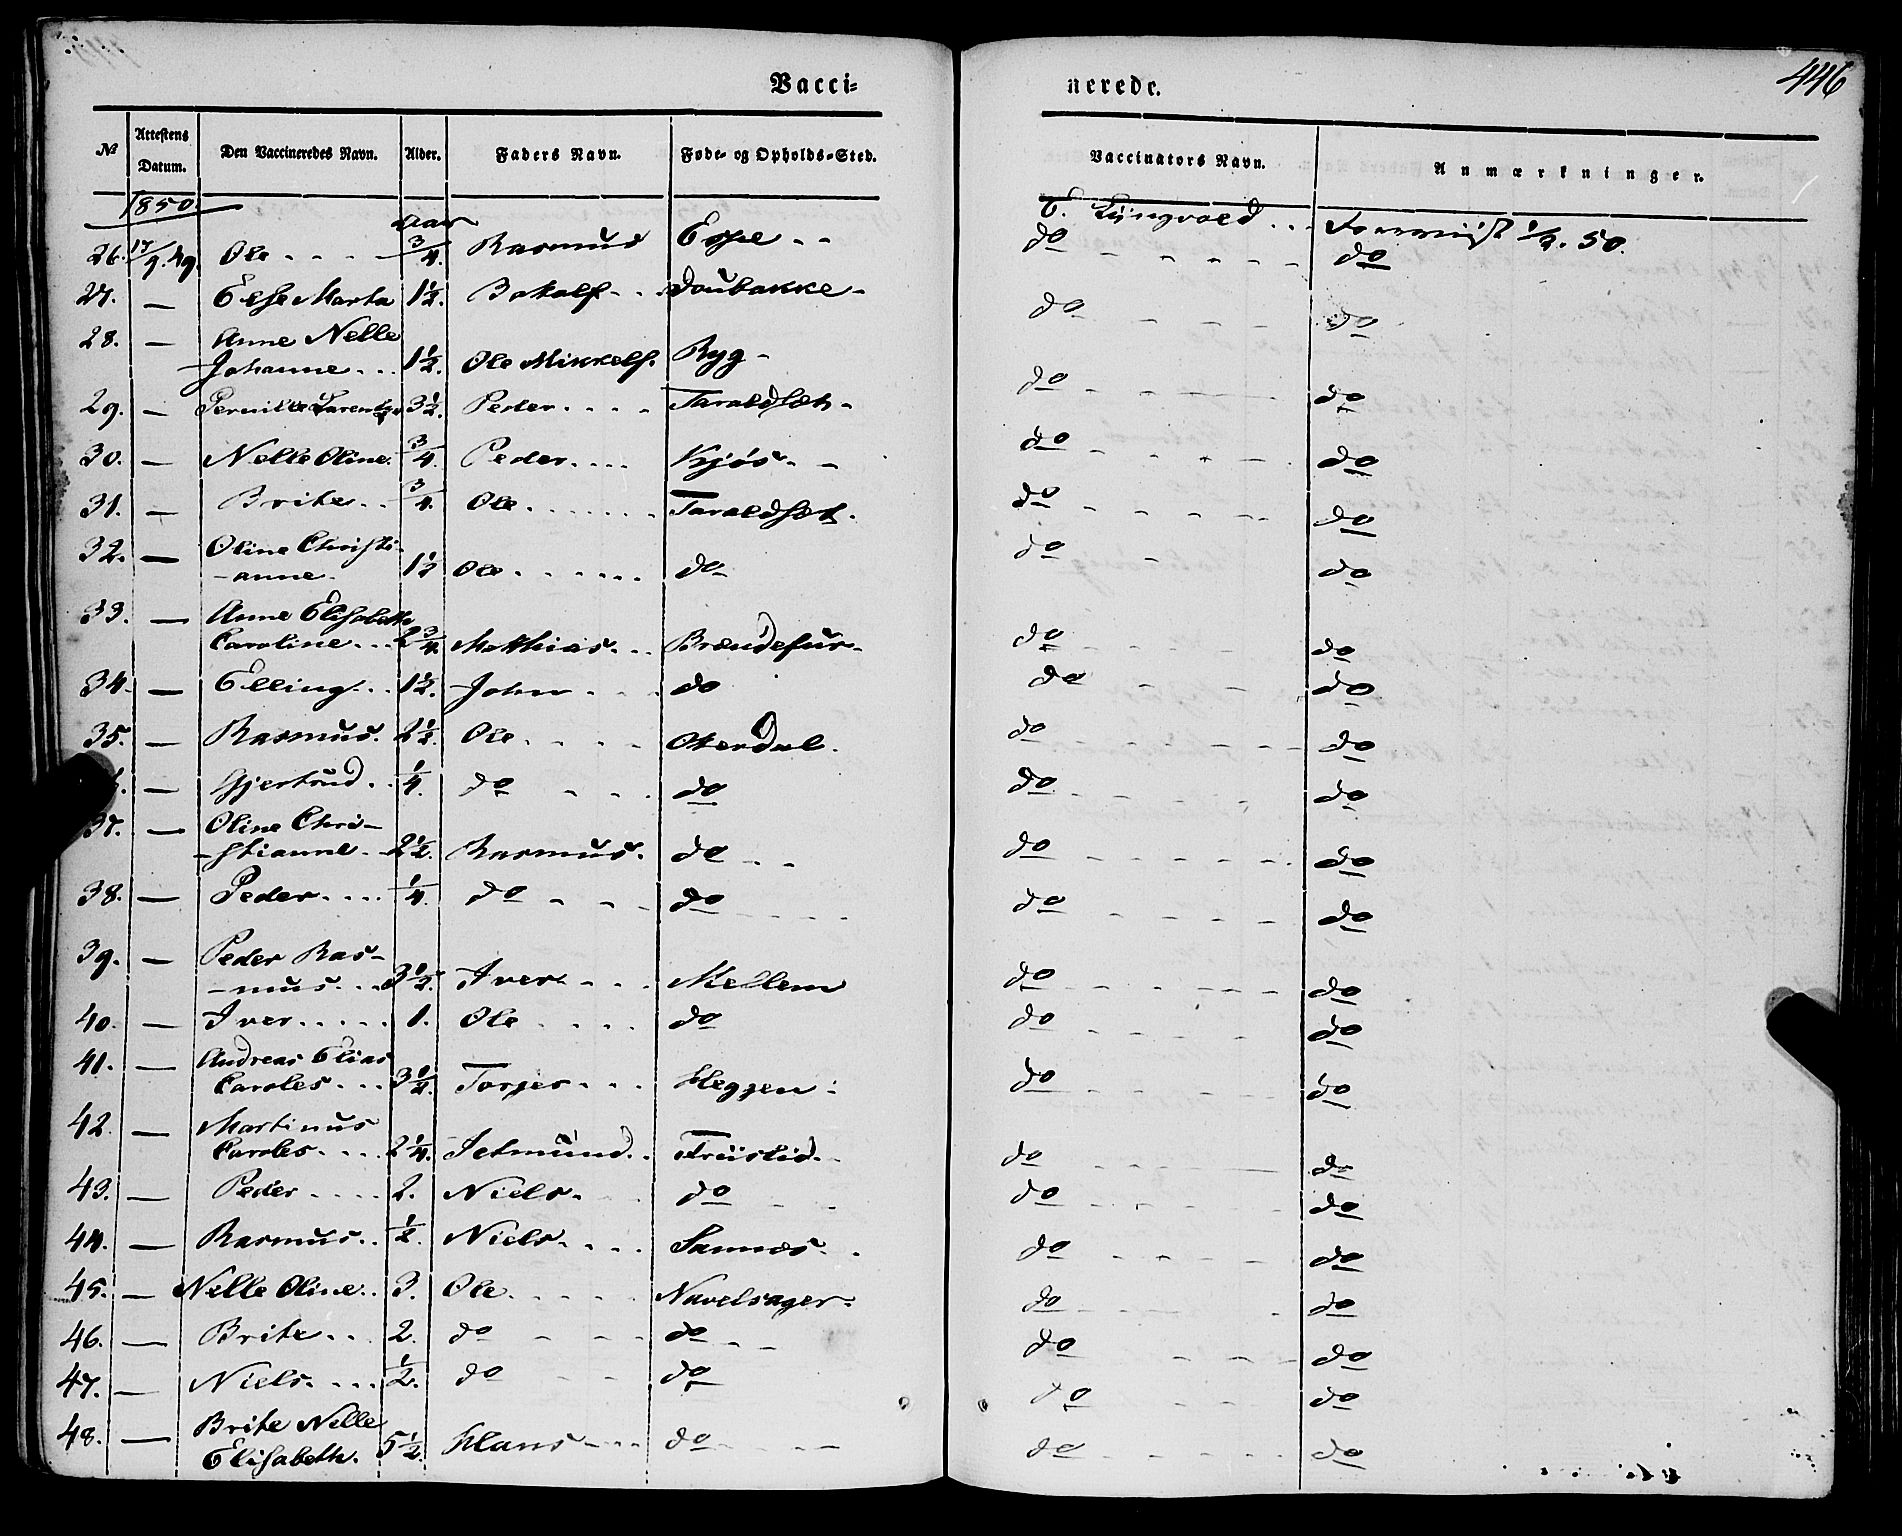 446
Vacci- nerede.
№ Attestens Datum. Den Vaccineredes Navn. Alder. Faders Navn. Føde- og Opholds-Sted. Vaccinators Navn. Anmærkninger.
1850. Aar
26. 17/9. 49 Ole 3/4. Rasmus Espe do do
27. — Else Marta 1 1/2. Botolf do do
28. — Anne Nelle
Johanne 1 1/2. Ole Mikkels. Ryg do do
29. — Pernille 3 1/2. Peder Taraldset do do
30. — Nelle Oline. 3/4. Peder Kjøs do do
31. — Brite 3/4. Ole Taraldset. do do
32. — Oline Christi-
-anne. 1 1/2 Ole do do do
33. — Anne Elisabeth
Caroline 2 3/4 Matthias do do
34. — Elling 1 1/2. John do do do
35. — Rasmus. 2 1/2. Ole Oterdal. do do
— Gjertrud 1/4. do do do do
37. — Oline Chri-
-stianne 2 1/2. Rasmus. do do do
38. — Peder 1/4. do do do do
39. — Peder Ras-
-mus 3 1/2. Iver Mellem do do
40. — Iver 1. Ole do do do
41. — Andreas Elias
Caroles 3 1/2. Torger Heggen do do
42. — Martinus
Caroles 2 1/4. do do
43. — Peder 2. Niels do do do
44. — Rasmus 1/2. Niels Sannes do do
45. — Nelle Oline 3. Ole Navelsager do do
46. — Brite 2. do do do do
47. — Niels 1/2. do do do do
48. — Brite Nelle
Elisabeth. 5 1/2. Hans do do do